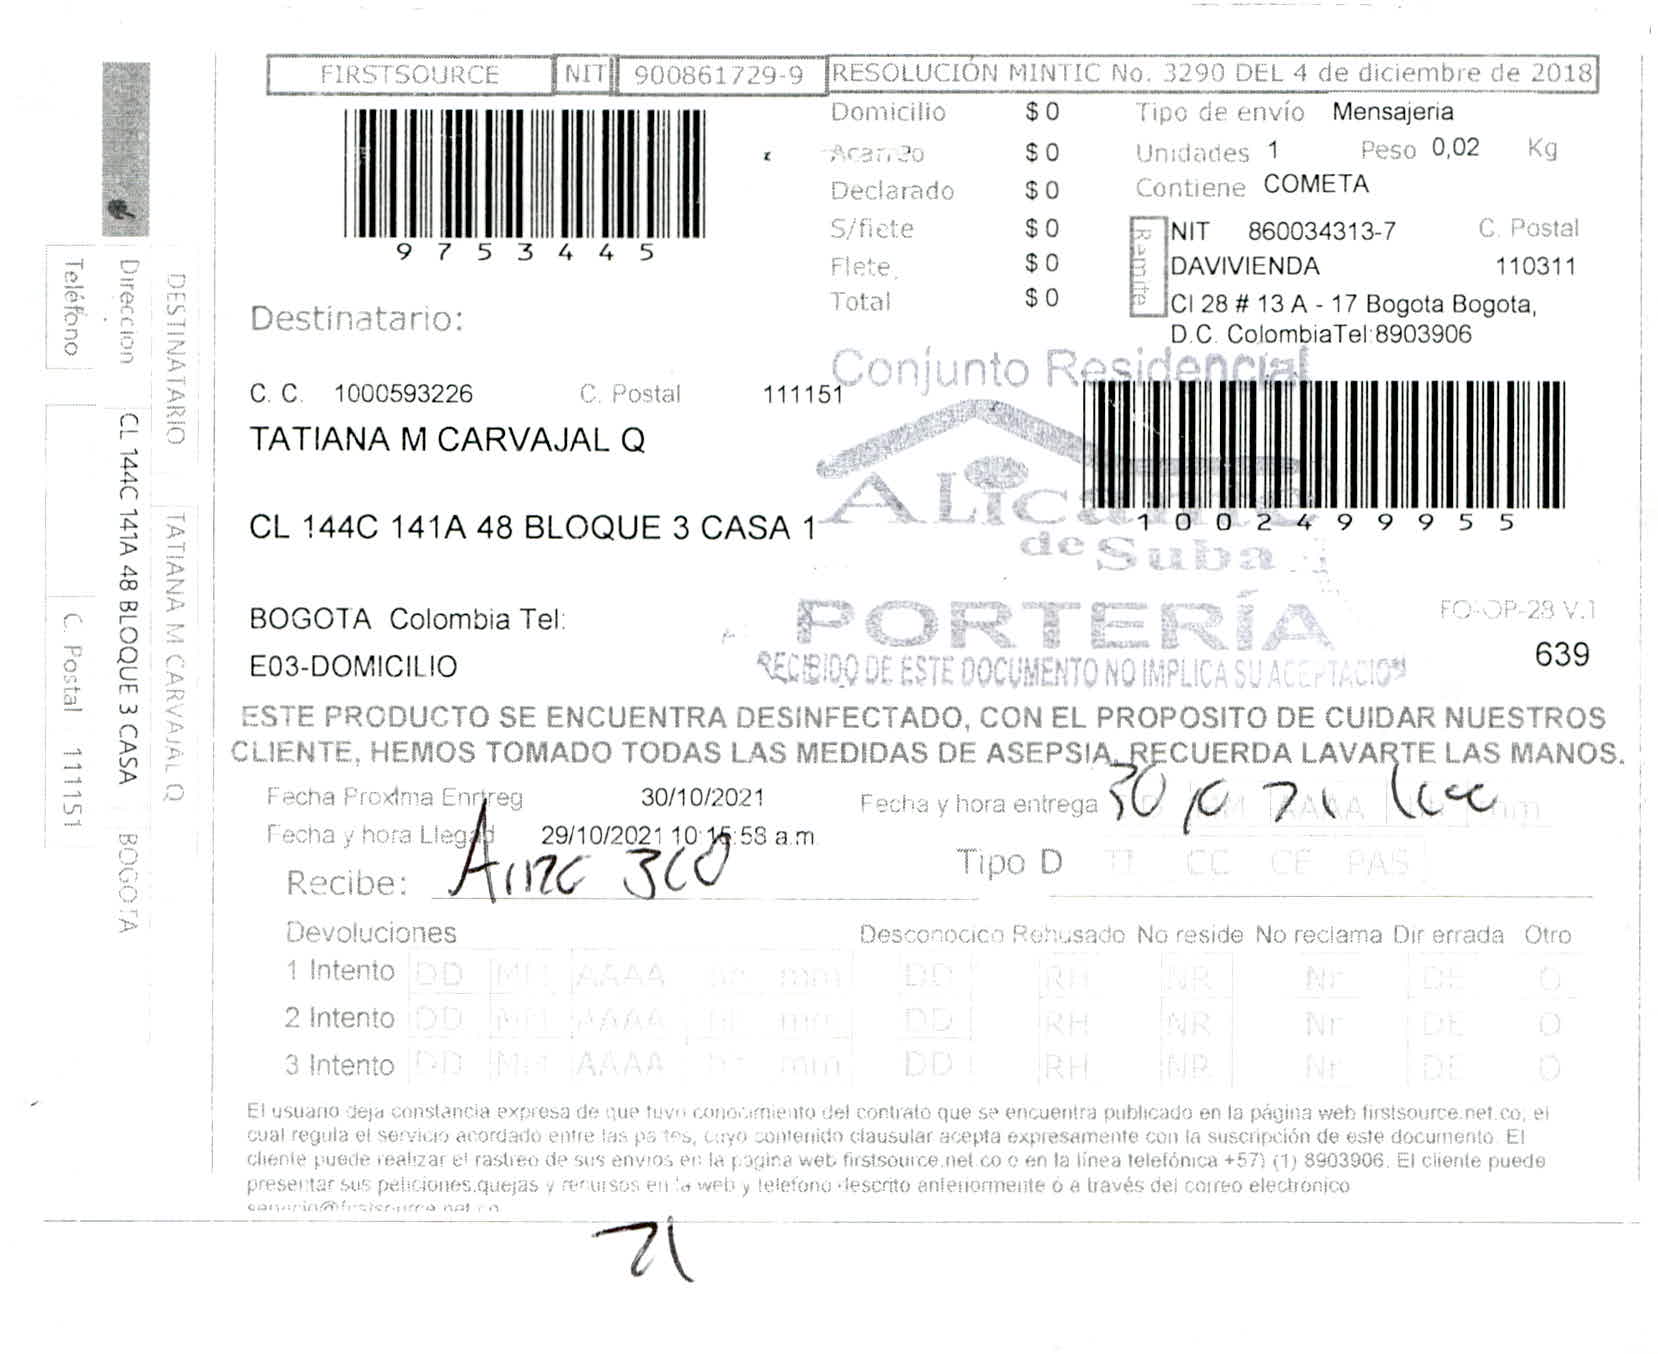 FIRSTSOURCE NIT 900861729-9 RESOLUCIÓN MINTIC No. 3290 DEL 4 de diciembre de 2018
9753445
Domicilio $ 0
Acarreo $ 0
Declarado $ 0
S/flete $ 0
Flete $ 0
Total $ 0
Tipo de envío Mensajeria
Unidades 1 Peso 0,02 Kg
Contiene COMETA
Remite
NIT 860034313-7 C. Postal
DAVIVIENDA 110311
Cl 28 # 13 A - 17 Bogota Bogota,
D.C. ColombiaTel:8903906
Destinatario:
C. C. 1000593226 C. Postal 111151
TATIANA M CARVAJAL Q
CL 144C 141A 48 BLOQUE 3 CASA 1
BOGOTA Colombia Tel:
E03-DOMICILIO
Conjunto Residencial
ALicante
de Suba
PORTERÍA
RECIBIDO DE ESTE DOCUMENTO NO IMPLICA SU ACEPTACION
10024999955
FO-OP-28 V.1
639
ESTE PRODUCTO SE ENCUENTRA DESINFECTADO, CON EL PROPOSITO DE CUIDAR NUESTROS
CLIENTE, HEMOS TOMADO TODAS LAS MEDIDAS DE ASEPSIA, RECUERDA LAVARTE LAS MANOS.
Fecha Proxima Entreg 30/10/2021
Fecha y hora entrega 30 10 21
Fecha y hora Llegad 29/10/2021 10:15:58 a.m.
Tipo D TI CC CE PAS
Recibe:
Devoluciones Desconocico Rehusado No reside No reclama Dir errada Otro
1 Intento DD MM AAAA hh mm DD RH NR Nr DE O
2 Intento DD MM AAAA hh mm DD RH NR Nr DE O
3 Intento DD MM AAAA hh mm DD RH NR Nr DE O
El usuario deja constancia expresa de que tuvo conocimiento del contrato que se encuentra publicado en la página web firstsource.net.co, el
cual regula el servicio acordado entre las partes, cuyo contenido clausular acepta expresamente con la suscripción de este documento. El
cliente puede realizar el rastreo de sus envios en la pagina web firstsource.net.co o en la línea telefónica +57) (1) 8903906. El cliente puede
presentar sus peticiones,quejas y recursos en la web y telefono descrito anteriormente o a través del correo electronico
servicio@firstsource.net.co
21
DESTINATARIO TATIANA M CARVAJAL Q
Direccion CL 144C 141A 48 BLOQUE 3 CASA BOGOTA
Teléfono C. Postal 111151